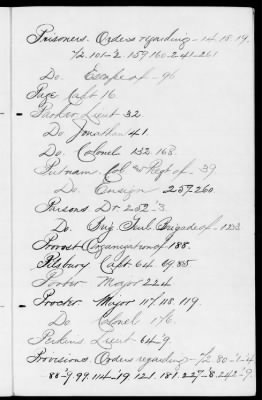 Prisoners. Orders regarding - 14. 18. 19.
72. 101-2 159. 160. 241-261
Do. Escape of - 96
Page Capt 16.
Parker Lieut 32
Do Jonathan 41.
Do. Colonel 132. 163.
Putnam. Col Regt of. 39
Do. Ensign 257-260
Parsons Dr 252-3
Do. Brig Genl Brigade of -
Provost Organization of 188.
Pilsbury Capt 64. 69. 85
Porter Major 224
Procter Major 117. 118. 119.
Do Colonel 176.
Perkins Lieut 64-9.
Provisions. Orders regarding - 72. 80-1-4
88-9. 99. 114-19 121. 181. 227-8. 242-9.